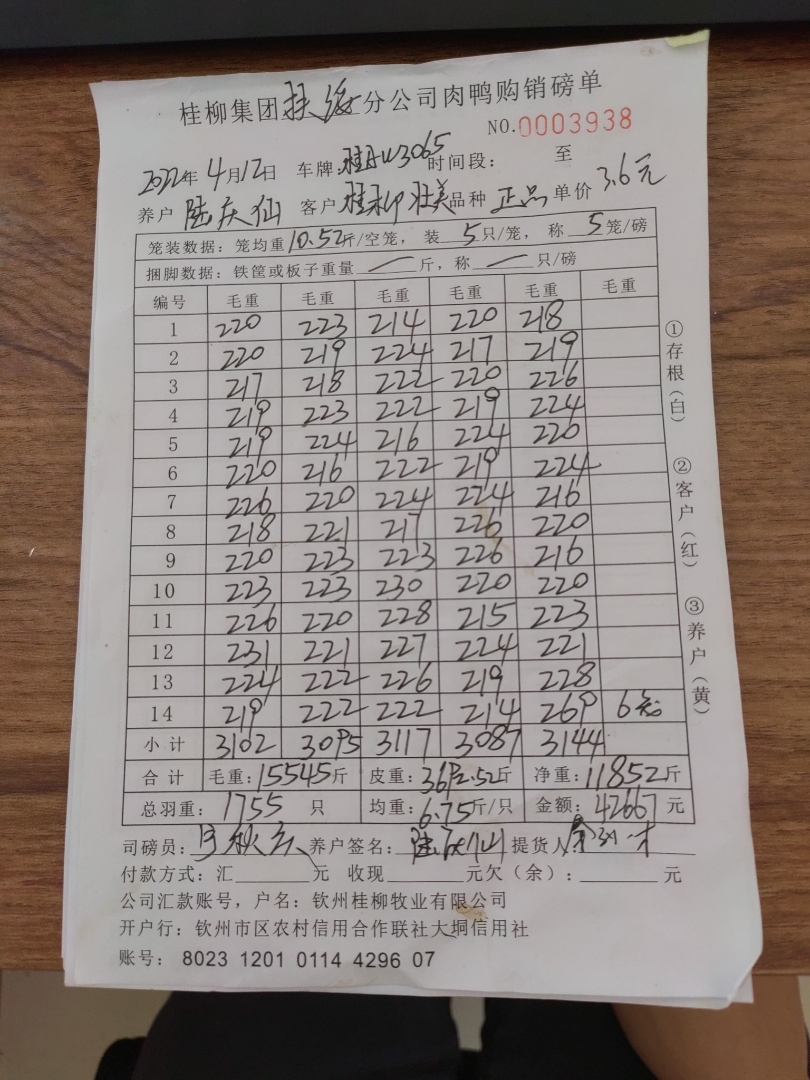 桂柳集团扶绥分公司肉鸭购销磅单
NO.0003938
2022年4月12日 车牌:桂AU3065 时间段: 至
养户 陆庆仙 客户 桂柳壮美 品种 正品 单价 3.6元
笼装数据:笼均重10.52斤/空笼,装 5 只/笼,称 5 笼/磅
捆脚数据:铁筐或板子重量 — 斤,称 — 只/磅
编号 毛重 毛重 毛重 毛重 毛重 毛重
1 220 223 214 220 218
2 220 219 224 217 219
3 217 218 222 220 226
4 219 223 222 219 224
5 219 224 216 224 220
6 220 216 222 219 224
7 226 220 224 224 216
8 218 221 217 226 220
9 220 223 223 226 216
10 223 223 230 220 220
11 226 220 228 215 223
12 231 221 227 224 221
13 224 222 226 219 228
14 219 222 222 214 269 6
小计 3102 3095 3117 3087 3144
合计 毛重:15545斤 皮重:3692.52斤 净重:11852斤
总羽重: 1755 只 均重:6.75斤/只 金额:42667元
司磅员: 养户签名:陆庆仙 提货人
付款方式:汇 元 收现 元欠(余): 元
公司汇款账号,户名:钦州桂柳牧业有限公司
开户行:钦州市区农村信用合作联社大垌信用社
账号: 8023 1201 0114 4296 07
①存根(白)
②客户(红)
③养户(黄)